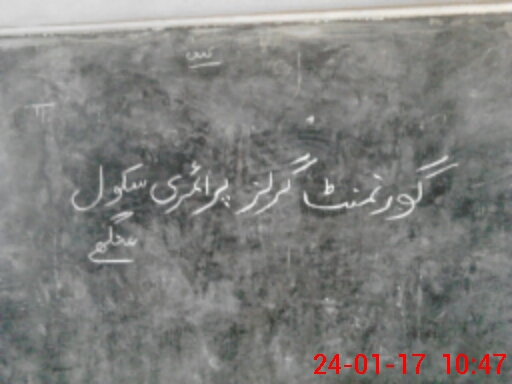 گورنمنٹ گرلز پرائمری سکول
24-01-17 10:47